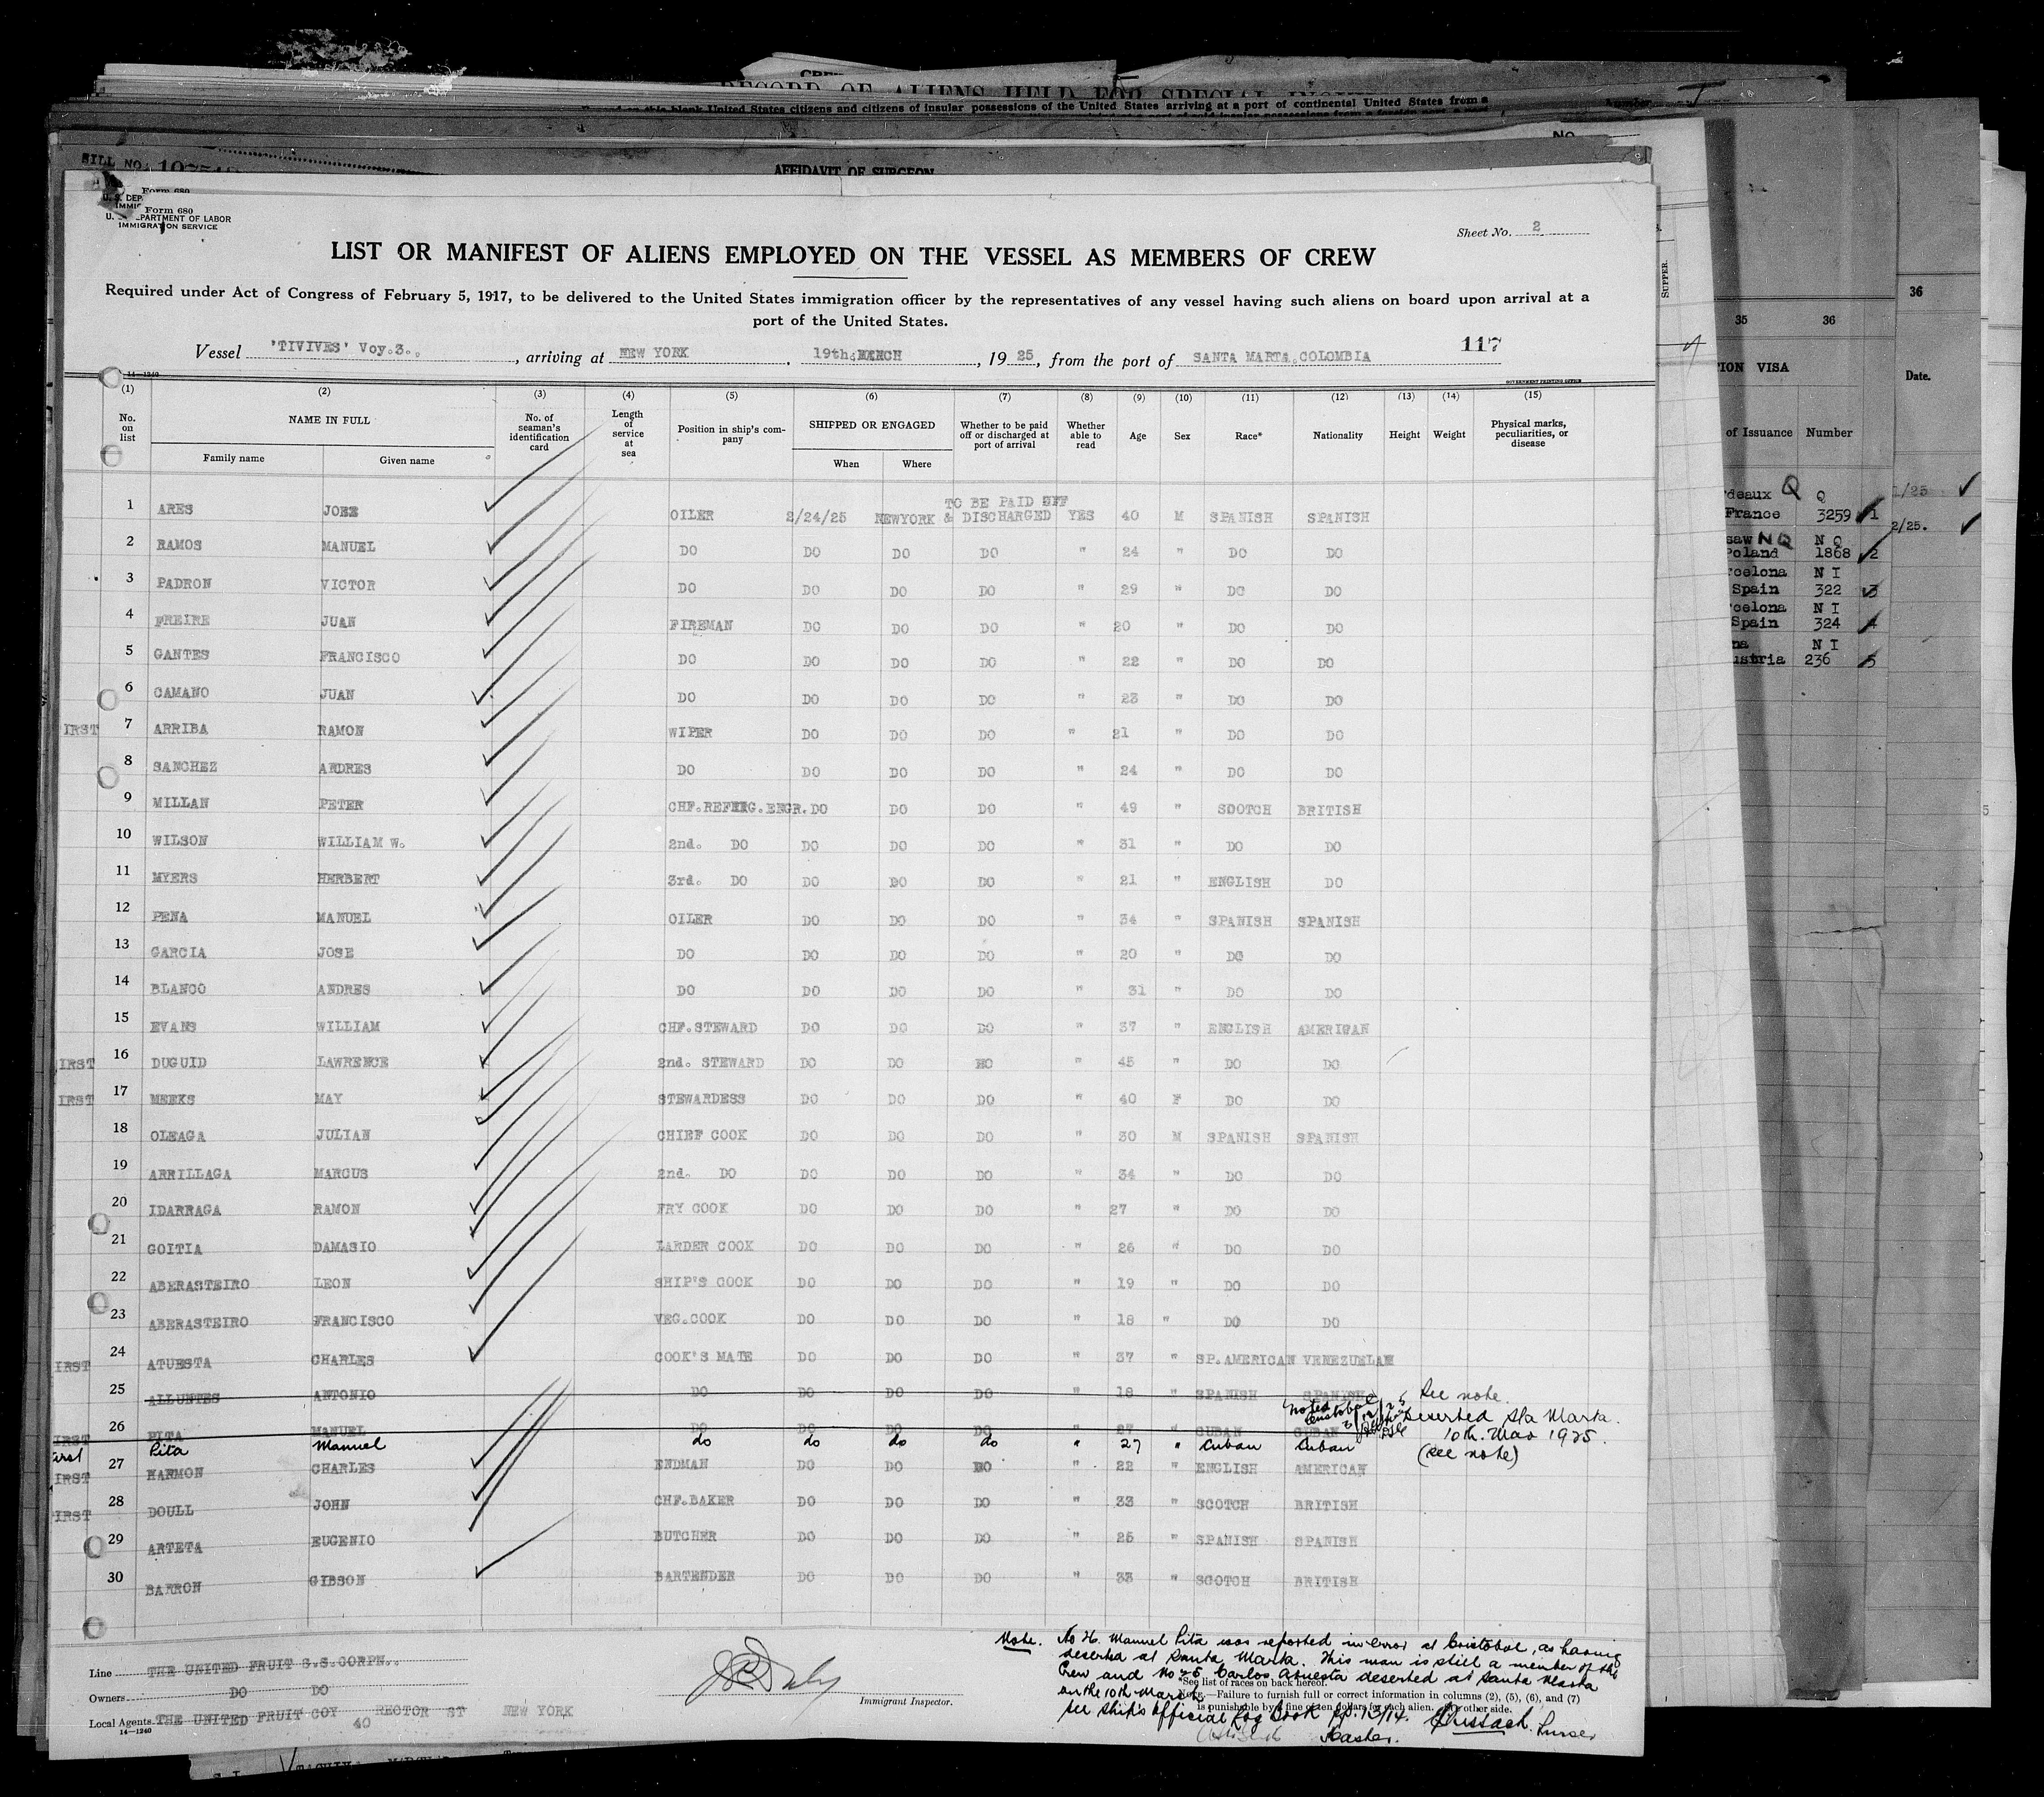 RECORD OF ALIENS HELD FOR SPECIAL
United States citizens and citizens of insular possessions of the United States arriving at a port of continental United States from a
BILL NO.
AFFIDAVIT OF SURGEON
Form 680
U. S. DEPARTMENT OF LABOR
IMMIGRATION SERVICE
Sheet No. 2
LIST OR MANIFEST OF ALIENS EMPLOYED ON THE VESSEL AS MEMBERS OF CREW
Required under Act of Congress of February 5, 1917, to be delivered to the United States immigration officer by the representatives of any vessel having such aliens on board upon arrival at a
port of the United States.
Vessel 'TIVIVES' Voy.3., arriving at NEW YORK, 19th. MARCH, 1925, from the port of SANTA MARTA. COLOMBIA 117
14—1240 GOVERNMENT PRINTING OFFICE
(1) (2) (3) (4) (5) (6) (7) (8) (9) (10) (11) (12) (13) (14) (15)
No. on list NAME IN FULL No. of seaman's identification card Length of service at sea Position in ship's company SHIPPED OR ENGAGED Whether to be paid off or discharged at port of arrival Whether able to read Age Sex Race* Nationality Height Weight Physical marks, peculiarities, or disease
Family name Given name When Where
TO BE PAID OFF
1 ARES JOSE OILER 2/24/25 NEWYORK & DISCHARGED YES 40 M SPANISH SPANISH
2 RAMOS MANUEL DO DO DO DO " 24 " DO DO
3 PADRON VICTOR DO DO DO DO " 29 " DO DO
4 FREIRE JUAN FIREMAN DO DO DO " 20 " DO DO
5 GANTES FRANCISCO DO DO DO DO " 22 " DO DO
6 CAMANO JUAN DO DO DO DO " 23 " DO DO
IRST 7 ARRIBA RAMON WIPER DO DO DO " 21 " DO DO
8 SANCHEZ ANDRES DO DO DO DO " 24 " DO DO
9 MILLAN PETER CHF.REFRIG.ENGR. DO DO DO " 49 " SCOTCH BRITISH
10 WILSON WILLIAM W. 2nd. DO DO DO DO " 31 " DO DO
11 MYERS HERBERT 3rd. DO DO DO DO " 21 " ENGLISH DO
12 PENA MANUEL OILER DO DO DO " 34 " SPANISH SPANISH
13 GARCIA JOSE DO DO DO DO " 20 " DO DO
14 BLANCO ANDRES DO DO DO DO " 31 " DO DO
15 EVANS WILLIAM CHF.STEWARD DO DO DO " 37 " ENGLISH AMERICAN
IRST 16 DUGUID LAWRENCE 2nd. STEWARD DO DO NO " 45 " DO DO
IRST 17 MEEKS MAY STEWARDESS DO DO DO " 40 F DO DO
18 OLEAGA JULIAN CHIEF COOK DO DO DO " 30 M SPANISH SPANISH
19 ARRILLAGA MARCUS 2nd. DO DO DO DO " 34 " DO DO
20 IDARRAGA RAMON FRY COOK DO DO DO " 27 " DO DO
21 GOITIA DAMASIO LARDER COOK DO DO DO " 26 " DO DO
22 ABERASTEIRO LEON SHIP'S COOK DO DO DO " 19 " DO DO
23 ABERASTEIRO FRANCISCO VEG.COOK DO DO DO " 18 " DO DO
IRST 24 ATUESTA CHARLES COOK'S MATE DO DO DO " 37 " SP.AMERICAN VENEZUELAN
25 ALLUNTES ANTONIO DO DO DO DO " 18 " SPANISH SPANISH See note.
Noted Cristobal 3/12/25
IRST 26 PITA MANUEL DO DO DO DO " 27 " CUBAN CUBAN Deserted Sta Marta.
irst Pita Manuel do do do do " 27 " Cuban Cuban 10th. Mar 1925.
(see note)
IRST 27 HARMON CHARLES ENDMAN DO DO NO " 22 " ENGLISH AMERICAN
IRST 28 DOULL JOHN CHF.BAKER DO DO DO " 33 " SCOTCH BRITISH
29 ARTETA EUGENIO BUTCHER DO DO DO " 25 " SPANISH SPANISH
30 BARRON GIBSON BARTENDER DO DO DO " 33 " SCOTCH BRITISH
Line THE UNITED FRUIT S.S.CORPN..
Owners DO DO
Local Agents THE UNITED FRUIT COY 40 RECTOR ST NEW YORK
14—1240
Immigrant Inspector.
Note. No 26. Manuel Pita was reported in error at Cristobal, as having
deserted at Santa Marta. This man is still a member of the
Crew and No 25 Carlos Atuesta deserted at Santa Marta
on the 10th March
see ship's official Log Book pp. 13/14.
Master. Purser
*See list of races on back hereof.
NOTE.—Failure to furnish full or correct information in columns (2), (5), (6), and (7)
is punishable by fine of ten dollars for each alien. See other side.
SUPPER.
35 36
ION VISA
of Issuance Number
deaux Q Q
France 3259 1
saw N Q
Poland 1868 2
rcelona N I
Spain 322 3
rcelona N I
Spain 324 4
na N I
ustria 236 5
36
Date.
1/25
2/25.